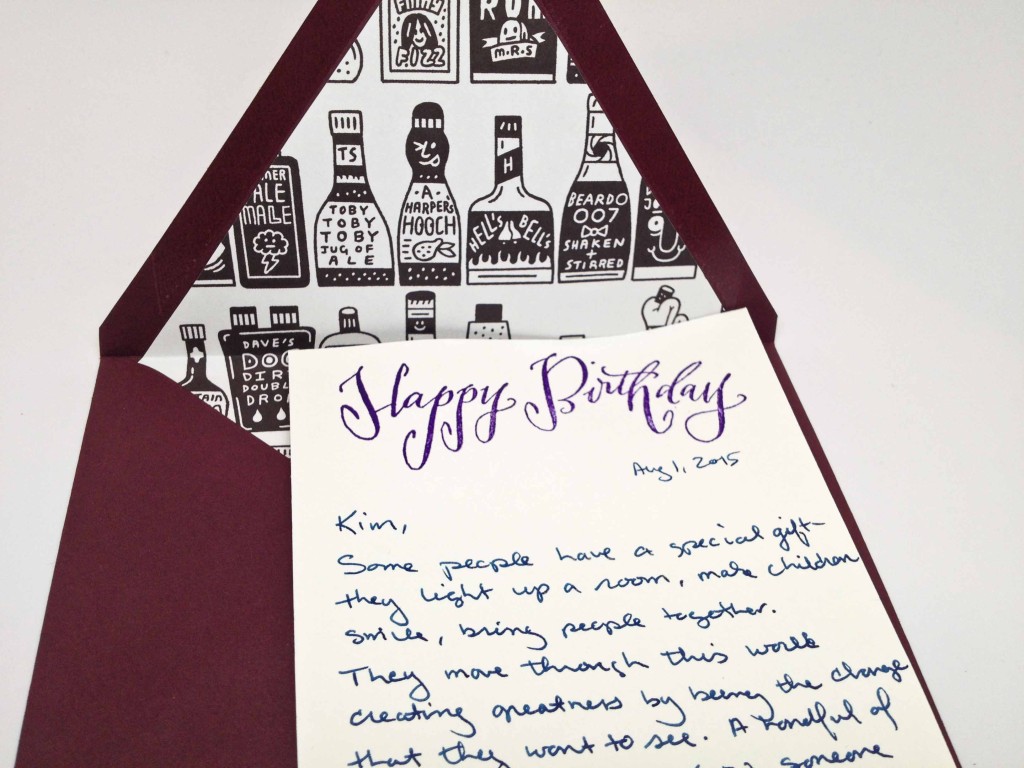 FIZZ
RUM
M.R.S
TS
TOBY
TOBY
TOBY
JUG OF
ALE
A
HARPERS
HOOCH
H
HELL'S BELL'S
BEARDO
007
SHAKEN
+
STIRRED
ALE
MALLE
DAVE'S
DOG
DIRT
DOUBLE
DROP
Happy Birthday
Aug 1, 2015
Kim,
Some people have a special gift-
they light up a room, make children
smile, bring people together.
They move through this world
creating greatness by being the change
that they want to see. A handful of
someone